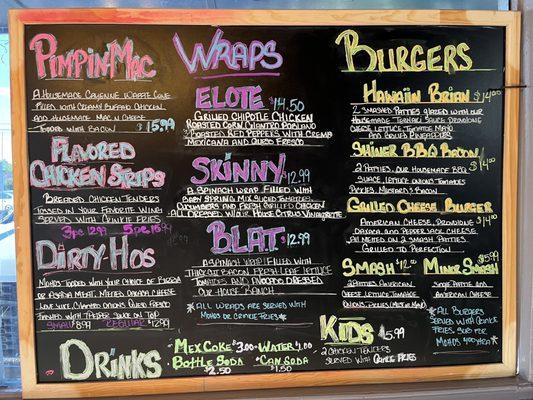 PIMPIN MAC
A HOUSEMADE CAYENNE WAFFLE CONE
FILLED WITH CREAMY BUFFALO CHICKEN
AND HOUSEMADE MAC N CHEESE
TOPPED WITH BACON $15.99
FLAVORED
CHICKEN STRIPS
BREADED CHICKEN TENDERS
TOSSED IN YOUR FAVORITE WING
SERVED WITH CRINKLE FRIES
3pc 12.99 5pc
DIRTY HOS
MOHOS TOPPED WITH YOUR CHOICE OF
OR ASADA MEAT, MELTED QUESO CHEESE
TOPPED WITH PEPPER JACK ON TOP
SMALL 8.99 REGULAR $12.99
DRINKS
MEX COKE $3.00 WATER $1.00
BOTTLE SODA CAN SODA
$2.50 $1.50
WRAPS
ELOTE $14.50
GRILLED CHIPOTLE CHICKEN
ROASTED CORN CILANTRO POBLANO
& ROASTED RED PEPPERS WITH CREMA
MEXICANA AND QUESO FRESCO
SKINNY $12.99
A SPINACH WRAP FILLED WITH
BABY SPRING MIX SLICED TOMATOES
CUCUMBERS AND FRESH GRILLED CHICKEN
ALL DRESSED W/ OUR HOUSE CITRUS VINAIGRETTE
BLAT $12.99
A SPINACH WRAP FILLED WITH
THICK CUT BACON FRESH LEAF LETTUCE
TOMATOES AND AVOCADO DRESSED
OUR HOUSE RANCH
*ALL WRAPS ARE SERVED WITH
MOHOS OR CRINKLE FRIES*
BURGERS
HAWAIIN BRIAN $14.00
2 SMASHED PATTIES GLAZED WITH OUR
HOUSEMADE TERIYAKI SAUCE PROVOLONE
CHEESE LETTUCE TOMATOES MAYO
AND GRILLED PINEAPPLES
SHINER BBQ BACON $14.00
2 PATTIES, OUR HOUSEMADE BBQ
SAUCE LETTUCE ONIONS TOMATOES
PICKLES, MUSTARD & BACON
GRILLED CHEESE BURGER $14.00
AMERICAN CHEESE, PROVOLONE
OAXACA, AND PEPPERJACK CHEESE
ALL MELTED ON 2 SMASH PATTIES
GRILLED TO PERFECTION
SMASH $12.00
2 PATTIES AMERICAN
CHEESE LETTUCE TOMATOE
ONIONS, PICKLES, MUSTARD MAYO
MINOR SMASH $5.99
SINGLE PATTIE AND
AMERICAN CHEESE
*ALL BURGERS
SERVED WITH CRINKLE
FRIES SUB FOR
MOHOS
KIDS $5.99
2 CHICKEN TENDERS
SERVED WITH CRINKLE FRIES